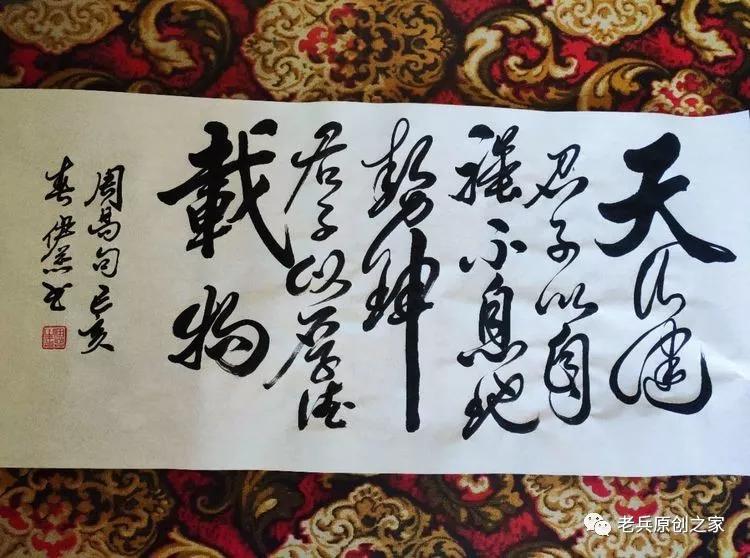 天行健
君子以自
強不息地
勢坤
君子以厚德
載物
周易句己亥
春 书
老兵原创之家